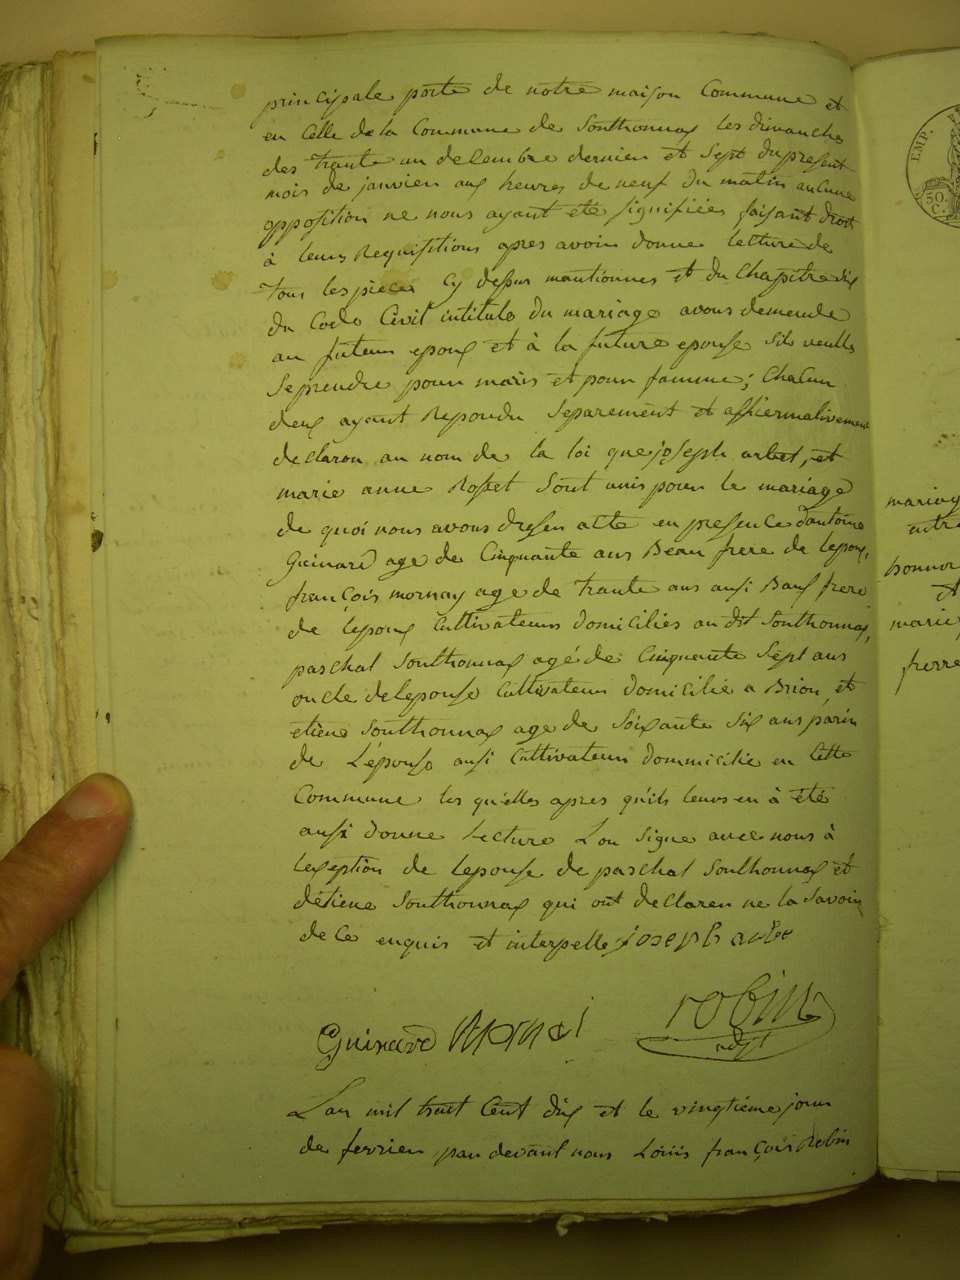 principale porte de notre maison Commune et
en Celle de la Commune de Southonnax les dimanche
des trante un decembre dernier et sept du present
mois de janvier aux heures de neuf du matin aucune
opposition ne nous ayant eté signifiées faisant droit
à leurs Requisitions apres avoir donne lecture de
tous les pieces Cy dessus mantionnes et du Chapitre six
du Code Civil intitule du mariage avons demende
au futeur epoux et à la future epouse sils veulle
se prendre pour maris et pour famme; Chacun
deux ayant Repondu separement et affiermativement
declaron au nom de la loi que joseph arbet, et
marie anne Rosset Sont unis pour le mariage
de quoi nous avons dressr atte en presence dantoine
Guinard age de Cinquante ans Beau frere de lepoux,
françois mornay age de trante ans ausi Baux frere
de lepoux Cultivateurs domiciliés au dit Southonnax,
paschal Southonnax agé de Cinquante Sept ans
oncle de lepouse Cultivateur domicilié a Brion, et
etiene Southonnax age de soixante six ans parin
de L'epouse ausi Cultivateur dommicilie en Cette
Commune les qu'elles apres qu'ils leurs en à été
ausi donne Lecture Lon signe avec nous à
lexseption de lepouse de paschal Southonnax et
détiene Southonnax qui ont declarer ne la savoir
de ce enquis et interpelle joseph arbet
Guinard robin
adjt
Lan mil truit Cent dix et le vingtième jour
de fevrier par devant nous Louis françois Robin
EMP.
50.
C.
mariag
entre
honnor
et
marie